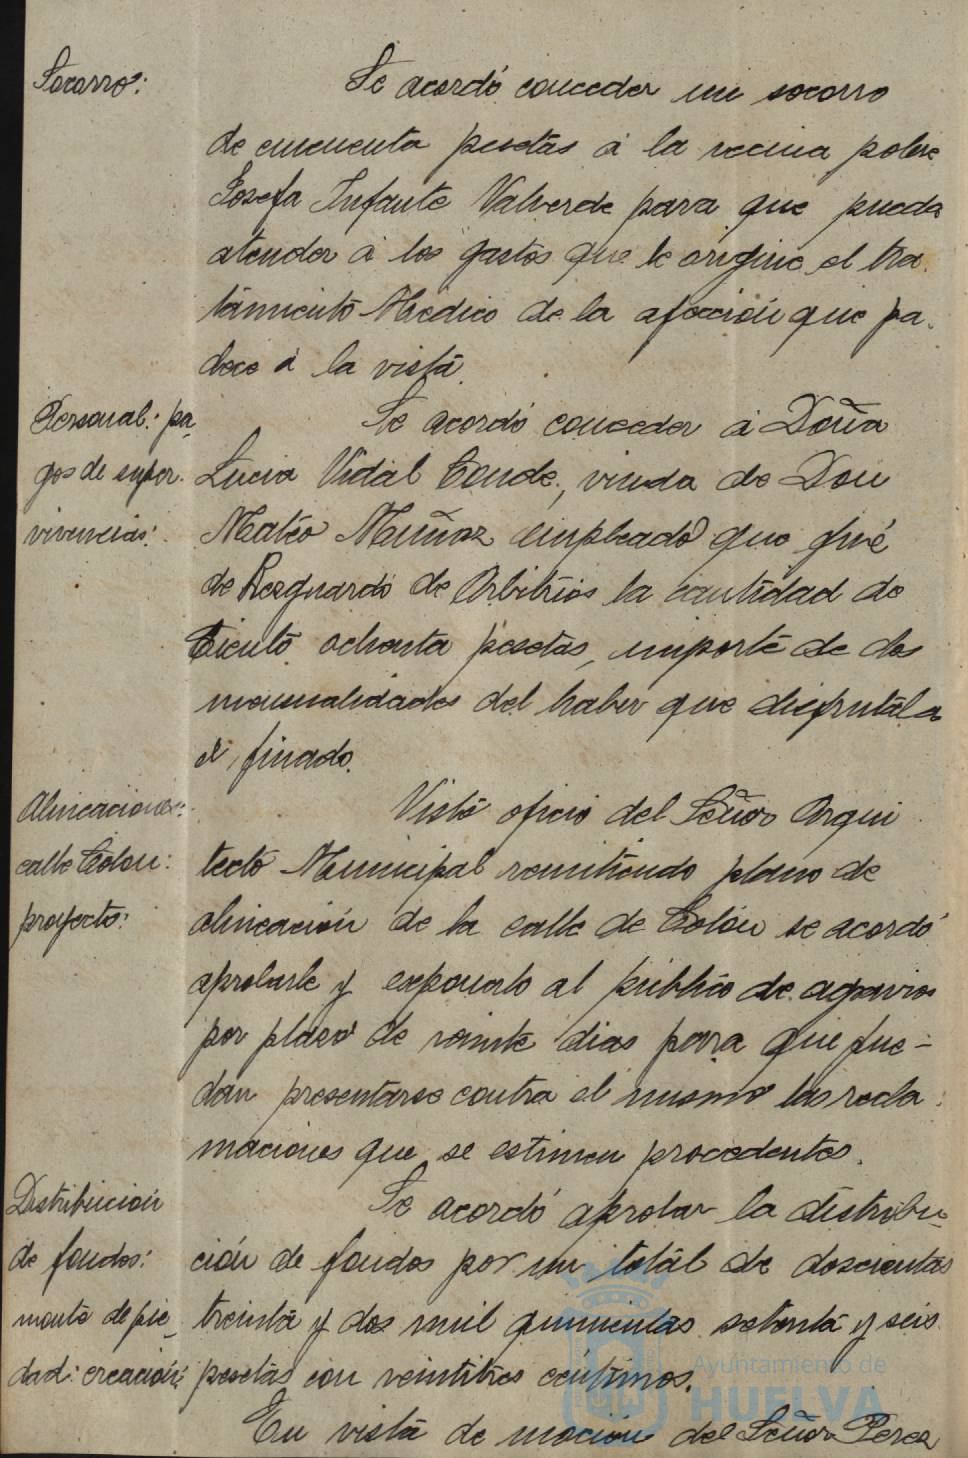 Socorro:
Se acordó conceder un socorro
de cincuenta pesetas á la vecina pobre
Josefa Infante Valverde para que pueda
atender á los gastos que le origine el tra
tamiento Medico de la afección que pa
dece á la vista.
Personal: pa
gos de super
vivencias:
Se acordó conceder á Doña
Lucia Vidal Conde, viuda de Don
Mateo Muñoz empleado que fué
de Resguardo de Arbitrios la cantidad de
Ciento ochenta pesetas, importe de dos
mensualidades del haber que disfrutaba
el finado.
Alineaciones:
calle Colon:
proyecto:
Visto oficio del Señor Arqui
tecto Municipal remitiendo plano de
alineación de la calle de Colón se acordó
aprobarle y exponerlo al público de agravios
por plazo de veinte dias para que pue-
dan presentarse contra el mismo las recla
maciones que se estimen procedentes.
Distribución
de fondos:
monte de pie
dad: creación:
Se acordó aprobar la distribu
ción de fondos por un total de doscientas
treinta y dos mil quinientas setenta y seis
pesetas con veintitres céntimos.
En vista de moción del Señor Perez
Ayuntamiento de
HUELVA